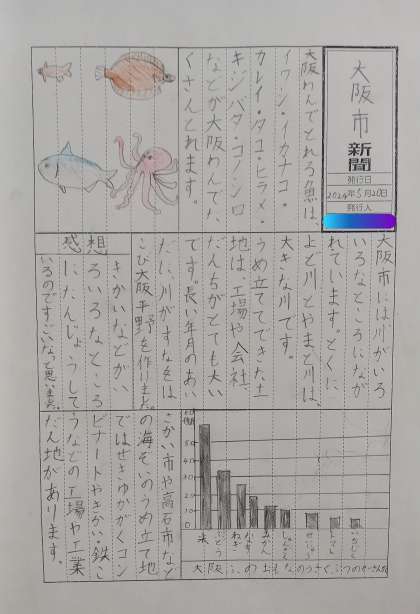 大阪市
新聞
発行日
2024年5月20日
発行人
大阪わんでとれる魚は、
イワシ・イカナゴ・
カレイ・タコ・ヒラメ・
キジハタ・コノシロ
などが大阪わんでた
くさんとれます。
大阪市には川がいろ
いろなところになが
れています。とくに
よど川とやまと川は、
大きな川です。
うめ立ててできた土
地は、工場や会社、
だんちがとても大い
です。長い年月のあい
だに、川がすなをは
こび大阪平野を作りました。
感想
きかいなどがい
ろいろなところ
にたんじょうして
いるのですごいなって思いました。
さかい市や高石市など
の海ぞいのうめ立て地
ではせきゆかがくコン
ビナートやきかい・鉄こ
うなどの工場や工業
だん地があります。
米
ぶどう
ねぎ
なす
みかん
しゅんぎく
トマト
いちじく